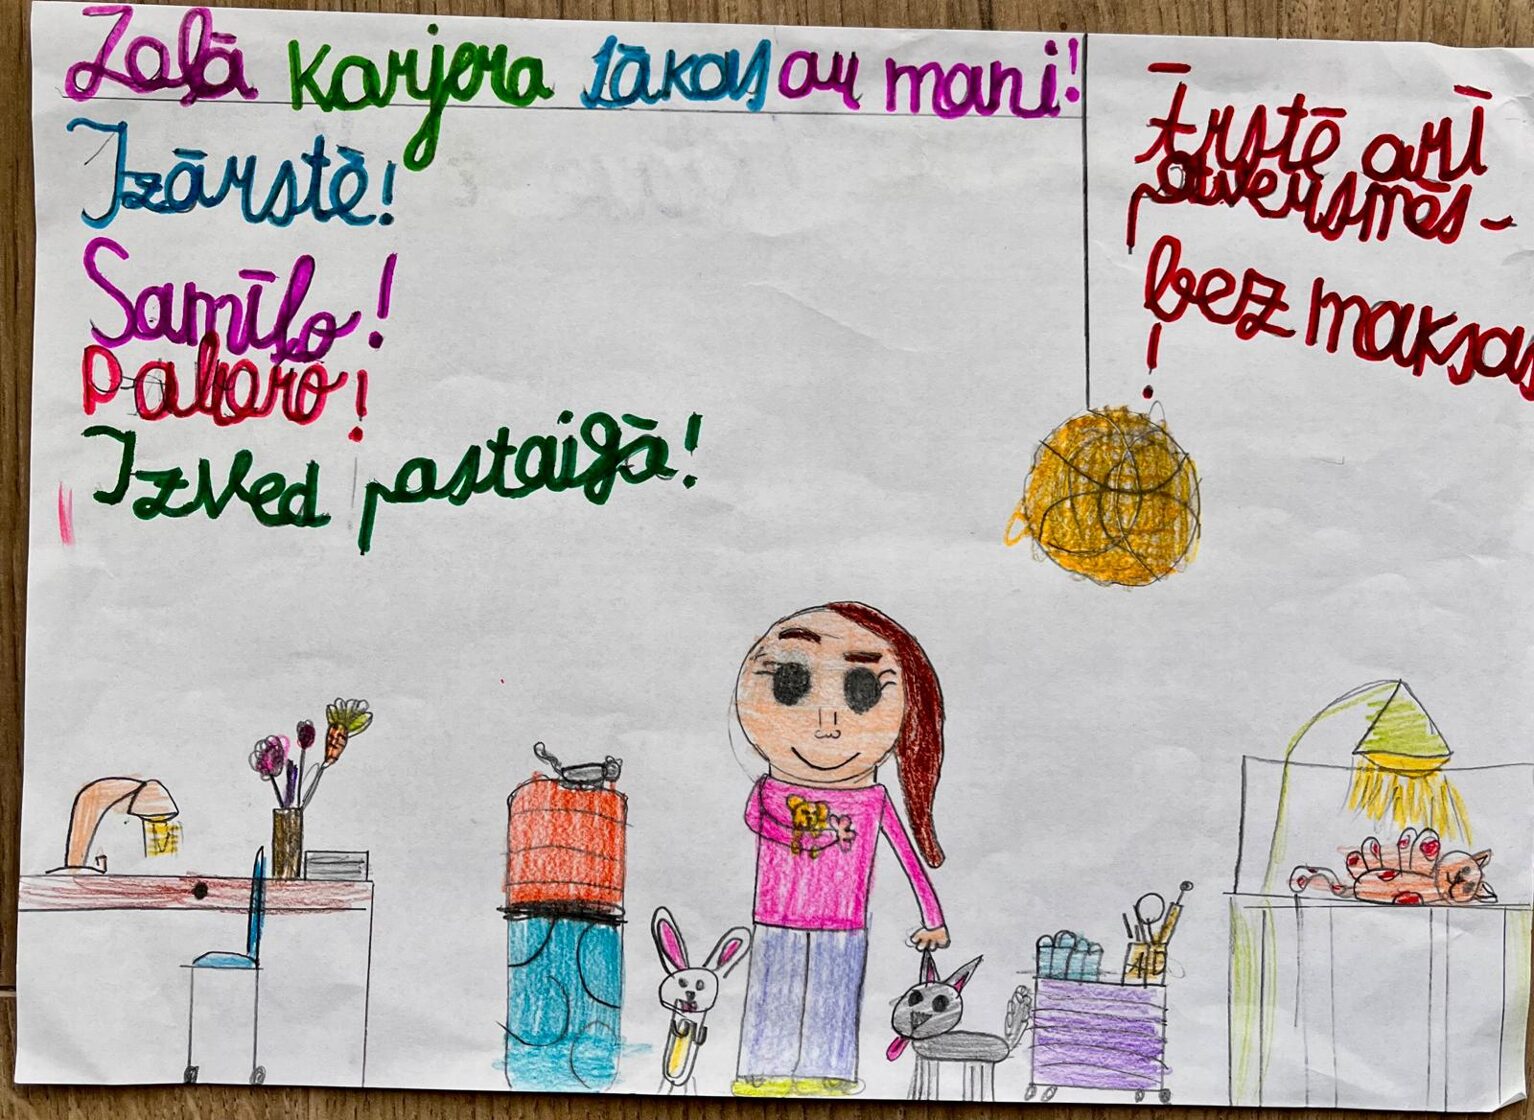 Zaļā karjera sākas ar mani!
Izārstē!
Samīļo!
Pabaro!
Izved pastaigā!
Ārstē arī
patversmēs-
bez maksas
!